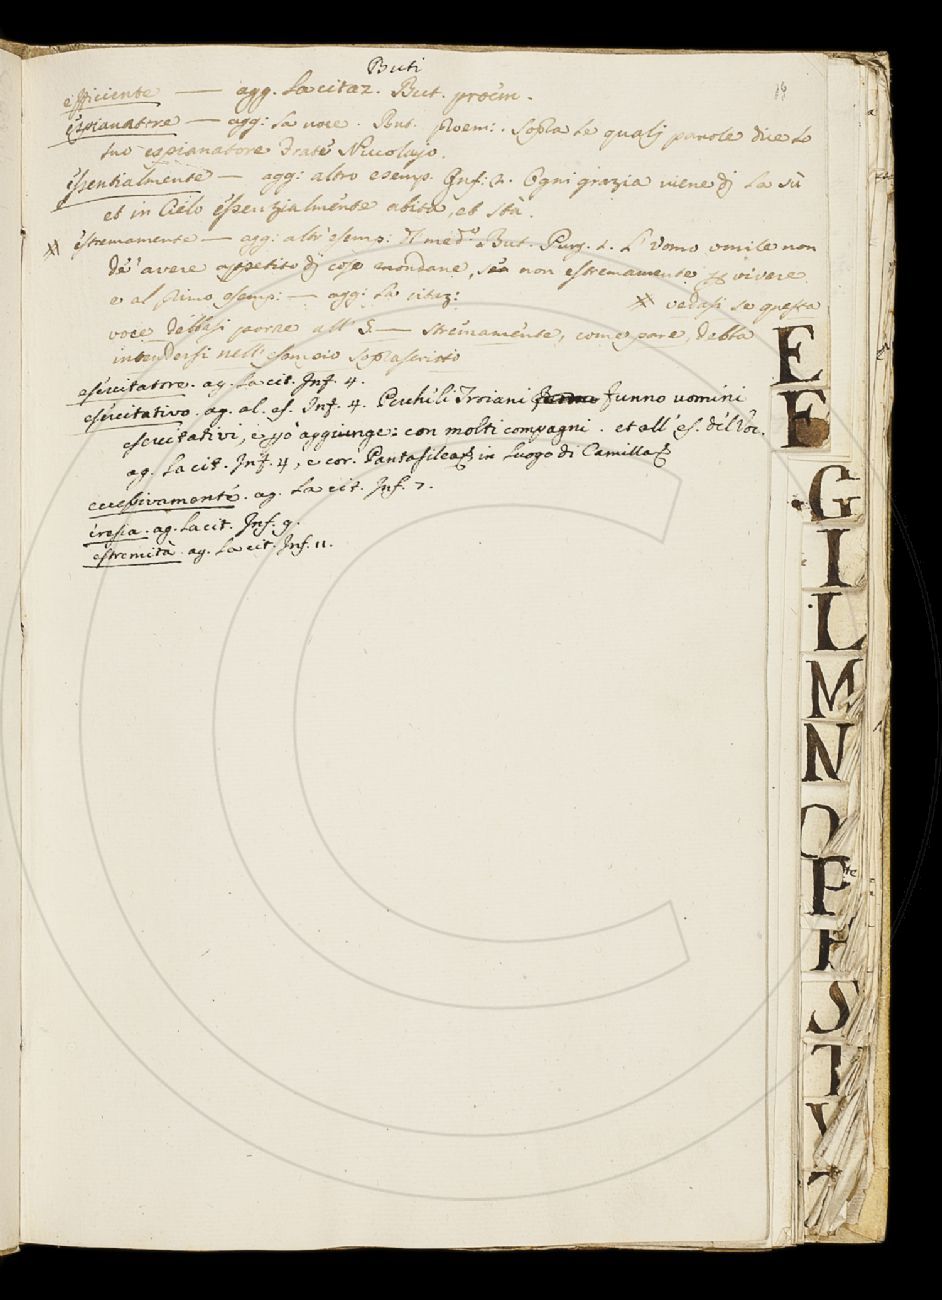 Buti
19
efficiente — agg. La citaz. But. proem.
espianatore — agg: La voce. But. Proem: . Sopra le qualj parole dice lo
suo espianatore Frate Niccolajo.
essentialmente — agg: altro esemp. Inf: 2. Ogni grazia viene dj la sù
et in Cielo essenzialmente abita, et stà.
# estremamente — agg: altr'esemp: Il med.o But. Purg. 2. L'uomo umile non
de' avere appetito dj cose mondane, se non estremamente vivere
e al primo esemp: — agg: La citaz: # vedasi se questa
voce debbasi porre all' S — stremamente, come pare, debba
intendersi nell'esempio soprascritto
esercitatore. ag. La cit. Inf. 4.
esercitativo. ag. al. es. Inf. 4. Perchè li Troiani funno uomini
esercitativi, e però aggiunge: con molti compagni. et all' es. del Voc.
ag. La cit. Inf. 4, e cor. Pantasilea in luogo di Camilla
eccessivamente. ag. La cit. Inf. 7.
eresia. ag. La cit. Inf. 9.
estremità. ag. La cit. Inf. 11.
E
F
G
I
L
M
N
O
P
S
T
V